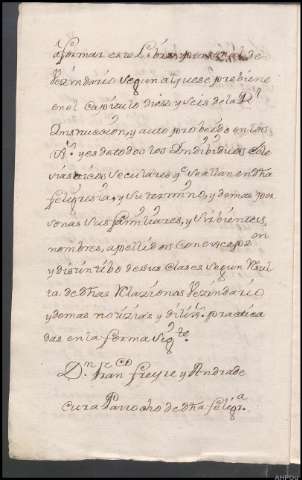 a formar este Libro personal de
Vezindario segun alque se prebiene
en el Capitulo diez y seis de la Rl
Instruccion, y auto probeido en los
As. y es de todos los Yndibiduos Ecle
siasticos, Seculares qe. se allan en dha
feligresia, y su termino, y demas per
sonas sus familiares, y sirbientes,
nombres, apellidos con expression
y distintibo de sus Clases segun Resul
ta de dhas Relaziones Vezindario
y demas notizias y dilixs. practica
das en la forma sigte.
Dn. Franco freyre y Andrade
cura Parrocho de dha feligra.
AHPOU